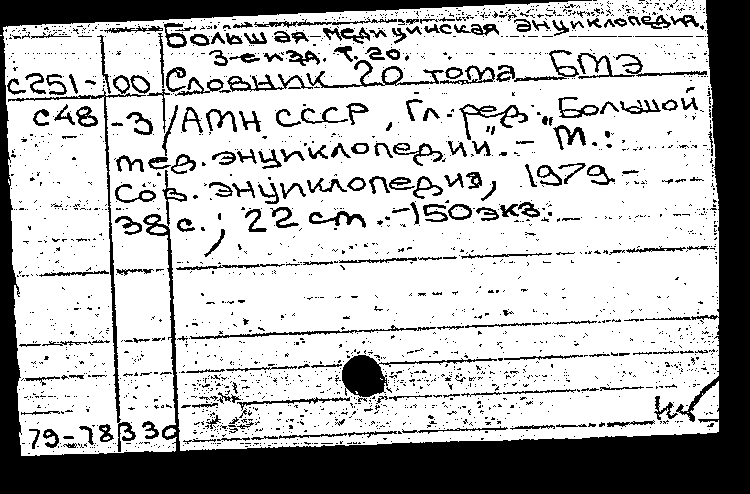 Большая медицинская энциклопедия.
3-е изд. Т. 20.
с251-100 Словник 20 тома БМЭ
с48 -3 /АМН СССР, Гл. ред. „Большой
мед. энциклопедии". - М.:
Сов. энциклопедия, 1979.-
38 с.; 22 cm.-150 экз.
79-78330